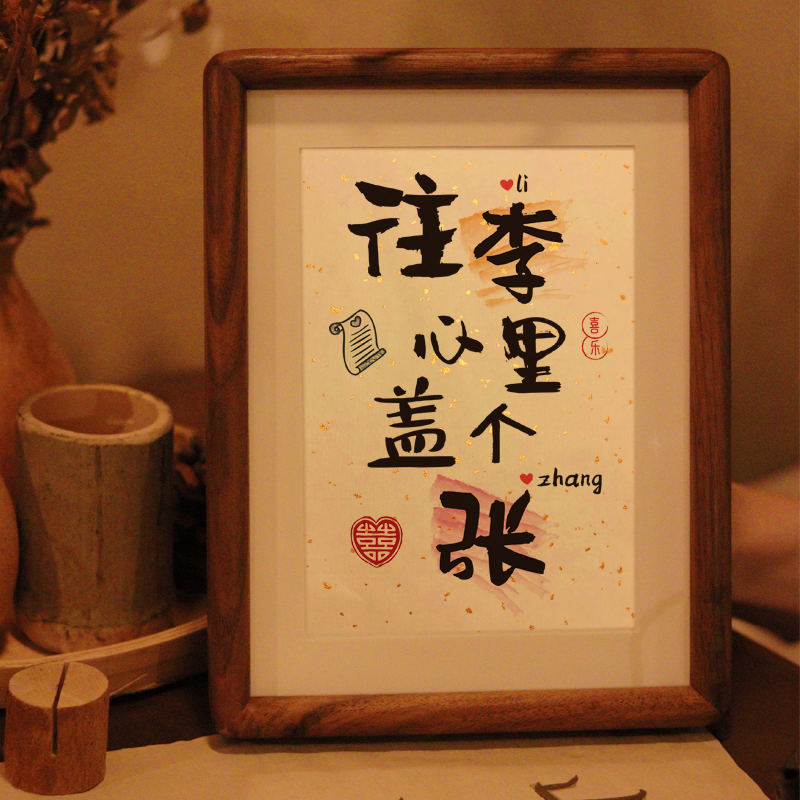 li
往李
心里
喜乐
盖个
zhang
张
囍